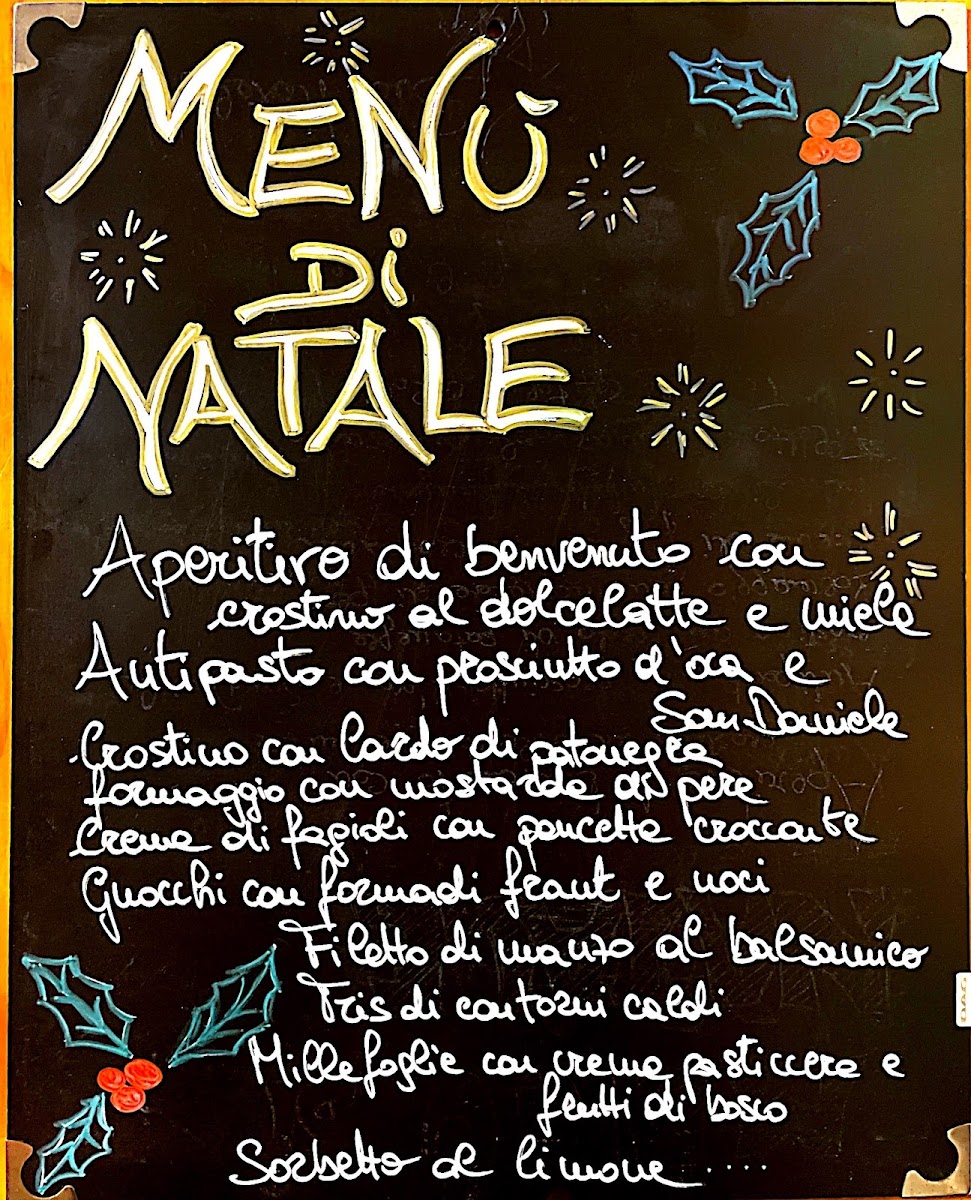 MENÙ
DI
NATALE
Aperitivo di benvenuto con
crostino al dolcelatte e miele
Antipasto con prosciutto d'oca e
San Daniele
Crostino con lardo di patanegra
formaggio con mostarda di pere
Crema di fagioli con pancetta croccante
Gnocchi con formadi frant e noci
Filetto di manzo al balsamico
Tris di contorni caldi
Millefoglie con crema pasticcera e
frutti di bosco
Sorbetto al limone .....